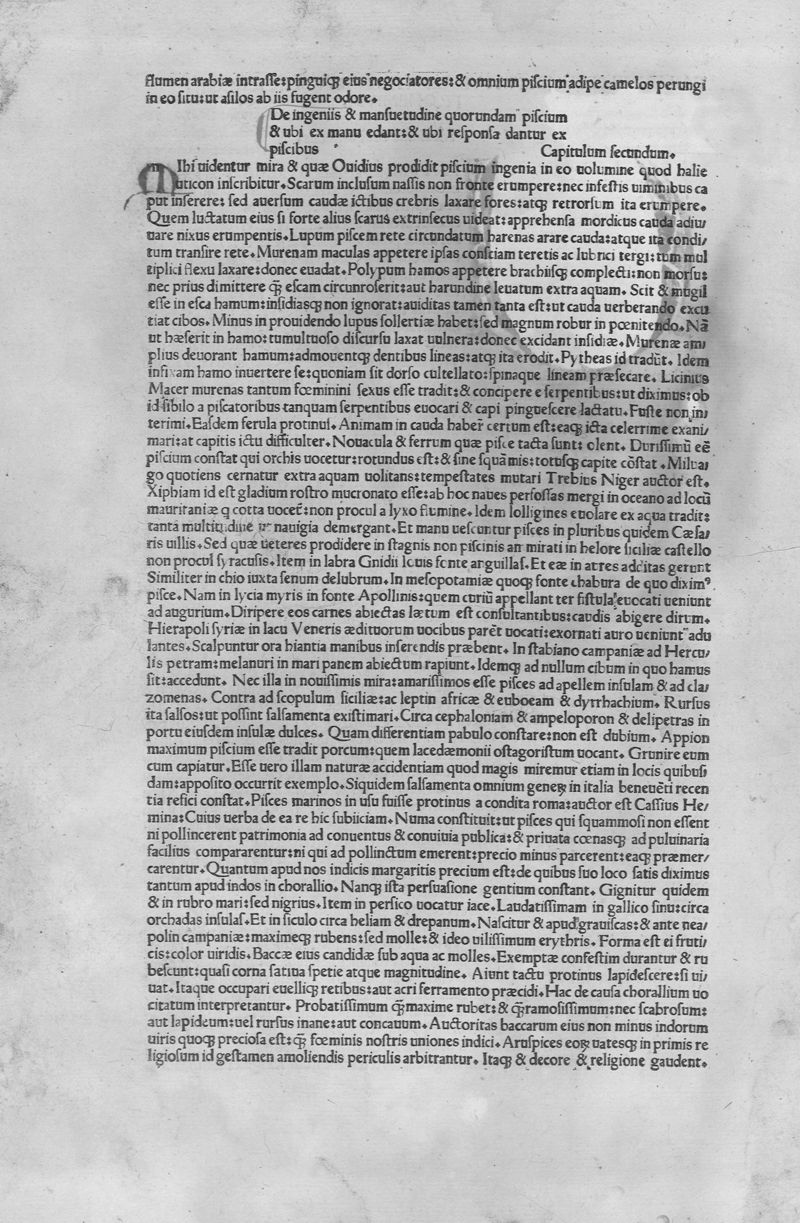 flumen arabiæ intrasse:pinguiqꝫ eius negociatores:& omnium piscium adipe camelos perungi
in eo situ:ut asilos ab iis fugent odore.
De ingeniis & mansuetudine quorundam piscium
& ubi ex manu edant:& ubi responsa dantur ex
piscibus Capitulum secundum.
Mihi uidentur mira & quæ Ouidius prodidit piscium ingenia in eo uolumine quod halie
uticon inscribitur. Scarum inclusum nassis non fronte erumpere:nec infestis uiminibus ca
put inserere: sed auersum caudæ ictibus crebris laxare fores:atqꝫ retrorsum ita erumpere.
Quem luctatum eius si forte alius scarus extrinsecus uideat: apprehensa mordicus cauda adiu/
uare nixus erumpentis. Lupum piscem rete circundatum harenas arare cauda:atque ita condi/
tum transire rete. Murenam maculas appetere ipsas consciam teretis ac lubrici tergi:tum mul
tiplici flexu laxare:donec euadat. Polypum hamos appetere brachiisqꝫ complecti:non morsu:
nec prius dimittere qꝫ̃ escam circunroserit:aut harundine leuatum extra aquam. Scit & mugil
esse in esca hamum:insidiasqꝫ non ignorat:auiditas tamen tanta est:ut cauda uerberando excu
tiat cibos. Minus in prouidendo lupus sollertiæ habet:sed magnum robur in pœnitendo. Nã
ut hæserit in hamo:tumultuoso discursu laxat uulnera:donec excidant insidiæ. Murenæ am/
plius deuorant hamum:admouentqꝫ dentibus lineas:atqꝫ ita erodit. Pytheas id tradũt. Idem
infixam hamo inuertere se:quoniam sit dorso cultellato:spinaque lineam præsecare. Licinius
Macer murenas tantum fœminini sexus esse tradit:& concipere e serpentibus:ut diximus:ob
id sibilo a piscatoribus tanquam serpentibus euocari & capi pinguescere lactatu. Fuste non in/
terimi. Easdem ferula protinus. Animam in cauda haber̃ certum est:eaqꝫ icta celerrime exani/
mari:at capitis ictu difficulter. Nouacula & ferrum quæ pisce tacta sunt: olent. Durissimũ eẽ
piscium constat qui orchis uocetur:rotundus est:& sine squãmis:totusqꝫ capite cõstat. Milua/
go quotiens cernatur extra aquam uolitans:tempestates mutari Trebius Niger auctor est.
Xiphiam id est gladium rostro mucronato esse:ab hoc naues perfossas mergi in oceano ad locũ
mauritaniæ q cotta uocet̃:non procul a lyxo flumine. Idem lolligines euolare ex aqua tradit:
tanta multitudine ut nauigia demergant. Et manu uescuntur pisces in pluribus quidem Cæsa/
ris uillis. Sed quæ ueteres prodidere in stagnis non piscinis admirati in helore siciliæ castello
non procul syracusis. Item in labra Gnidii Iouis fonte anguillas. Et eæ in atres additas gerunt
Similiter in chio iuxta senum delubrum. In mesopotamiæ quoqꝫ fonte chabura de quo diximꝰ.
pisce. Nam in lycia myris in fonte Apollinis:quem curiũ appellant ter fistula euocati ueniunt
ad augurium. Diripere eos carnes abiectas lætum est consultantibus:caudis abigere dirum.
Hierapoli syriæ in lacu Veneris ædituorum uocibus parẽt uocati:exornati auro ueniunt adu
lantes. Scalpuntur ora hiantia manibus inserendis præbent. In stabiano campaniæ ad Hercu/
lis petram:melanuri in mari panem abiectum rapiunt. Idemqꝫ ad nullum cibum in quo hamus
sit:accedunt. Nec illa in nouissimis mira:amarissimos esse pisces ad apellem insulam & ad cla/
zomenas. Contra ad scopulum siciliæ:ac leptin africæ & euboeam & dyrrhachium. Rursus
ita salsos:ut possint salsamenta existimari. Circa cephaloniam & ampeloporon & delipetras in
portu eiusdem insulæ dulces. Quam differentiam pabulo constare:non est dubium. Appion
maximum piscium esse tradit porcum:quem lacedæmonii ostagoristum uocant. Grunire eum
cum capiatur. Esse uero illam naturæ accidentiam quod magis miremur etiam in locis quibusi
dam:apposito occurrit exemplo. Siquidem salsamenta omnium geneꝝ in italia beneuẽti recen
tia refici constat. Pisces marinos in usu fuisse protinus a condita roma:auctor est Cassius He/
mina:Cuius uerba de ea re hic subiiciam. Numa constituit:ut pisces qui squammosi non essent
ni pollincerent patrimonia ad conuentus & conuiuia publica:& priuata cœnasqꝫ ad puluinaria
facilius compararentur:ni qui ad pollinctum emerent:precio minus parcerent:eaqꝫ præmer/
carentur. Quantum apud nos indicis margaritis precium est:de quibus suo loco satis diximus
tantum apud indos in chorallio. Nanqꝫ ista persuasione gentium constant. Gignitur quidem
& in rubro mari:sed nigrius. Item in persico uocatur iace. Laudatissimam in gallico sinu:circa
orchadas insulas. Et in siculo circa heliam & drepanum. Nascitur & apud grauiscas:& ante nea/
polin campaniæ:maximeqꝫ rubens:sed molle:& ideo uilissimum erythris. Forma est ei fruti/
cis:color uiridis. Baccæ eius candidæ sub aqua ac molles. Exemptæ confestim durantur & ru
bescunt:quasi corna satiua spetie atque magnitudine. Aiunt tactu protinus lapidescere:si ui/
uat. Itaque occupari euelliqꝫ retibus:aut acri ferramento præcidi. Hac de causa chorallium uo
citatum interpretantur. Probatissimum qꝫ̃ maxime rubet:& qꝫ̃ ramosissimum:nec scabrosum:
aut lapideum:uel rursus inane:aut concauum. Auctoritas baccarum eius non minus indorum
uiris quoqꝫ preciosa est:qꝫ̃ fœminis nostris uniones indici. Aruspices eoꝝ uatesqꝫ in primis re
ligiosum id gestamen amoliendis periculis arbitrantur. Itaqꝫ & decore & religione gaudent.